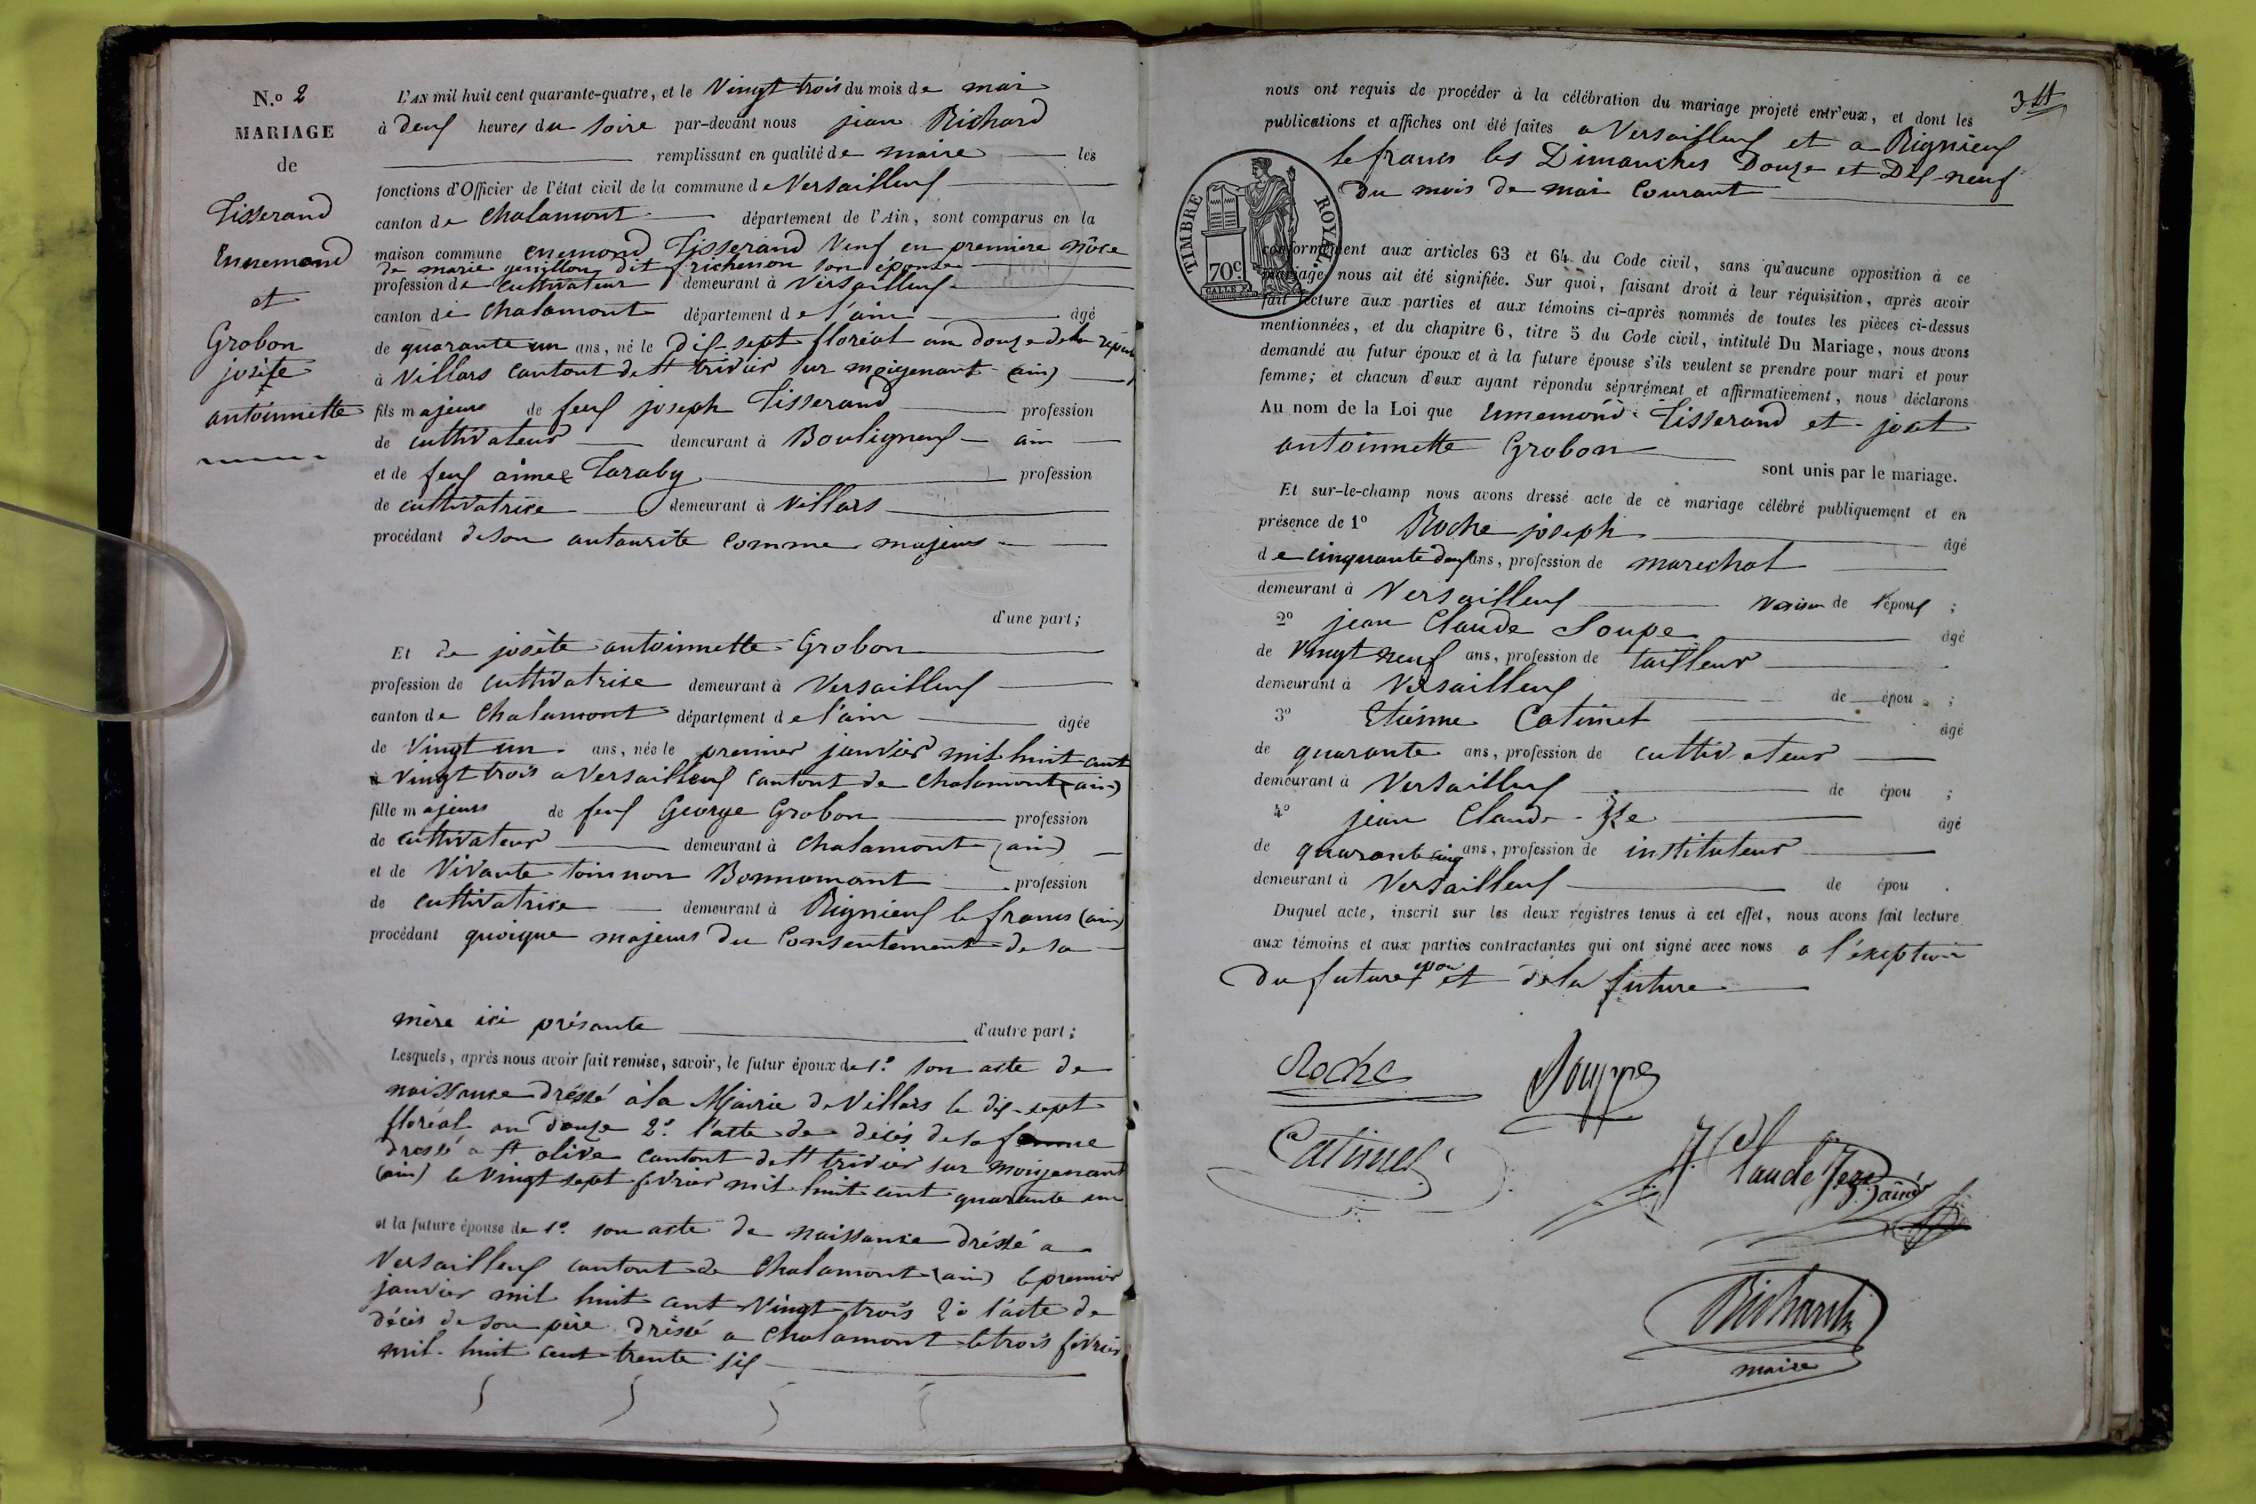 N.º 2
MARIAGE
de
Tisserand
Ennemond
et
Grobon
josète
antoinnette
L'AN mil huit cent quarante-quatre, et le Vingt trois du mois de mai
à deux heures du soire par-devant nous jean Richard
remplissant en qualité de maire les
fonctions d'Officier de l'état civil de la commune de Versailleux
canton de Chalamont département de l'Ain, sont comparus en la
maison commune enemond Tisserand Veuf en premiere nôce
de marie dit son épouse
profession de Cultivateur demeurant à Versailleux
canton de Chalamont département de l'ain âgé
de quarante un ans, né le Dix-sept floréal an douze de la
à Villars cantont de St trivier sur moigenant (ain)
fils majeur de feux joseph Tisserand profession
de cultivateur demeurant à Bouligneux ain
et de feux aimée Taraby profession
de cultivatrice demeurant à Villars
procédant de son autaurité comme majeur
d'une part;
Et de josète antoinnette Grobon
profession de cultivatrise demeurant à Versailleux
canton de Chalamont département de l'ain âgée
de Vingt un ans, née le premier janvier mil huit cent
Vingt trois a Versailleux cantont de Chalamont (ain)
fille majeure de feux George Grobon profession
de cultivateur demeurant à Chalamont (ain)
et de Vivante toinnon Bonnamant profession
de cultivatrice demeurant à Rignieux le franc (ain)
procédant quoique majeure du Consentement de sa
mère ici présante d'autre part;
Lesquels, après nous avoir fait remise, savoir, le futur époux de 1.º son acte de
naissance dréssé à la Mairie de Villars le dix-sept
floréal an douze 2.º l'acte de décès de la femme
dressé a St olive cantont de St trivier sur moigenant
(ain) le Vingt sept fevrier mil huit cent quarante un
et la future épouse de 1.º son acte de naissance dréssé a
Versailleux cantont de Chalamont (ain) le premier
janvier mil huit cent Vingt trois 2.º l'acte de
décès de son père dréssé a Chalamont le trois fevrier
mil huit cent trente six
nous ont requis de procéder à la célébration du mariage projeté entr'eux, et dont les
publications et affiches ont été faites a Versailleux et a Rignieux
le franc les Dimanches Douze et Dix neuf
du mois de mai Courant
TIMBRE ROYAL.
70c.
conformément aux articles 63 et 64 du Code civil, sans qu'aucune opposition à ce
mariage nous ait été signifiée. Sur quoi, faisant droit à leur réquisition, après avoir
fait lecture aux parties et aux témoins ci-après nommés de toutes les pièces ci-dessus
mentionnées, et du chapitre 6, titre 5 du Code civil, intitulé Du Mariage, nous avons
demandé au futur époux et à la future épouse s'ils veulent se prendre pour mari et pour
femme; et chacun d'eux ayant répondu séparément et affirmativement, nous déclarons
Au nom de la Loi que Ennemond Tisserand et
antoinnette Grobon sont unis par le mariage.
Et sur-le-champ nous avons dressé acte de ce mariage célébré publiquement et en
présence de 1º Roche joseph âgé
de cinquante deux ans, profession de marechal
demeurant à Versailleux Voisin de l'époux ;
2º jean Claude Soupe âgé
de Vingt neuf ans, profession de tailleur
demeurant à Versailleux de épou ;
3º Etiénne Catimet âgé
de quarante ans, profession de cultivateur
demeurant à Versailleux de épou ;
4º jean Claude âgé
de quarante cinq ans, profession de instituteur
demeurant à Versailleux de épou .
Duquel acte, inscrit sur les deux registres tenus à cet effet, nous avons fait lecture
aux témoins et aux parties contractantes qui ont signé avec nous a l'éxeption
du future et de la future
Roche
Souppe
Catimet
Claude
Richard
maire